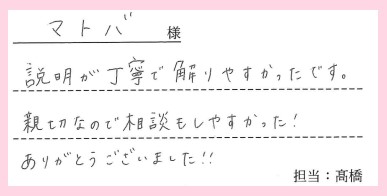 マトバ 様
説明が丁寧で解りやすかったです。
親切なので相談もしやすかった!
ありがとうございました!!
担当:髙橋